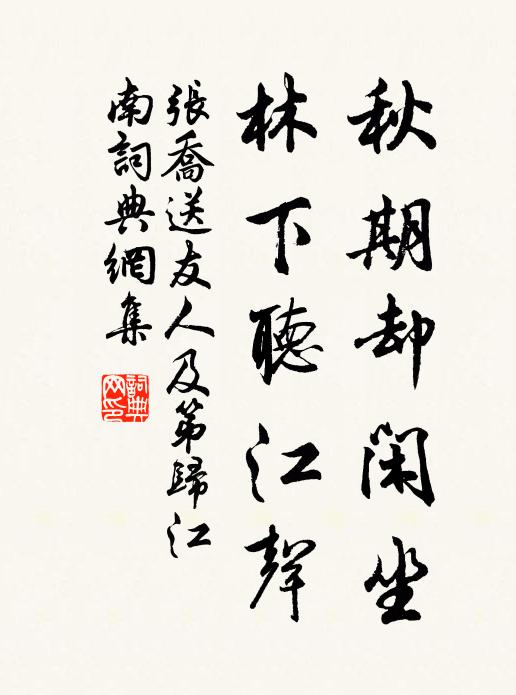 秋期却閑坐
林下聽江聲
張喬送友人及第歸江
南詞典網集
詞典網印